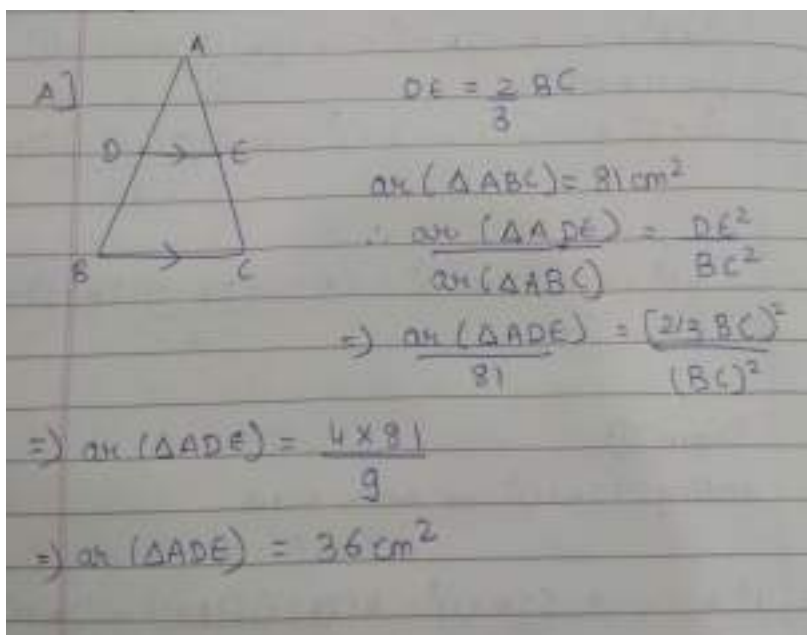 A
A]
DE = 2/3 BC
D E
ar (ΔABC) = 81 cm²
B C
∴ ar (ΔADE) / ar (ΔABC) = DE² / BC²
=) ar (ΔADE) / 81 = (2/3 BC)² / (BC)²
=) ar (ΔADE) = 4 × 81 / 9
=) ar (ΔADE) = 36 cm²